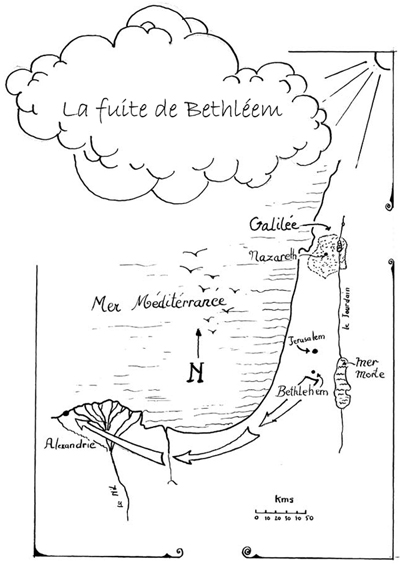 La fuite de Bethléem
Galilée
Nazareth
Mer Méditérranée
le Jourdain
Jerusalem
N
Bethlehem
mer
morte
Alexandrie
le Nil
Kms
0 10 20 30 40 50